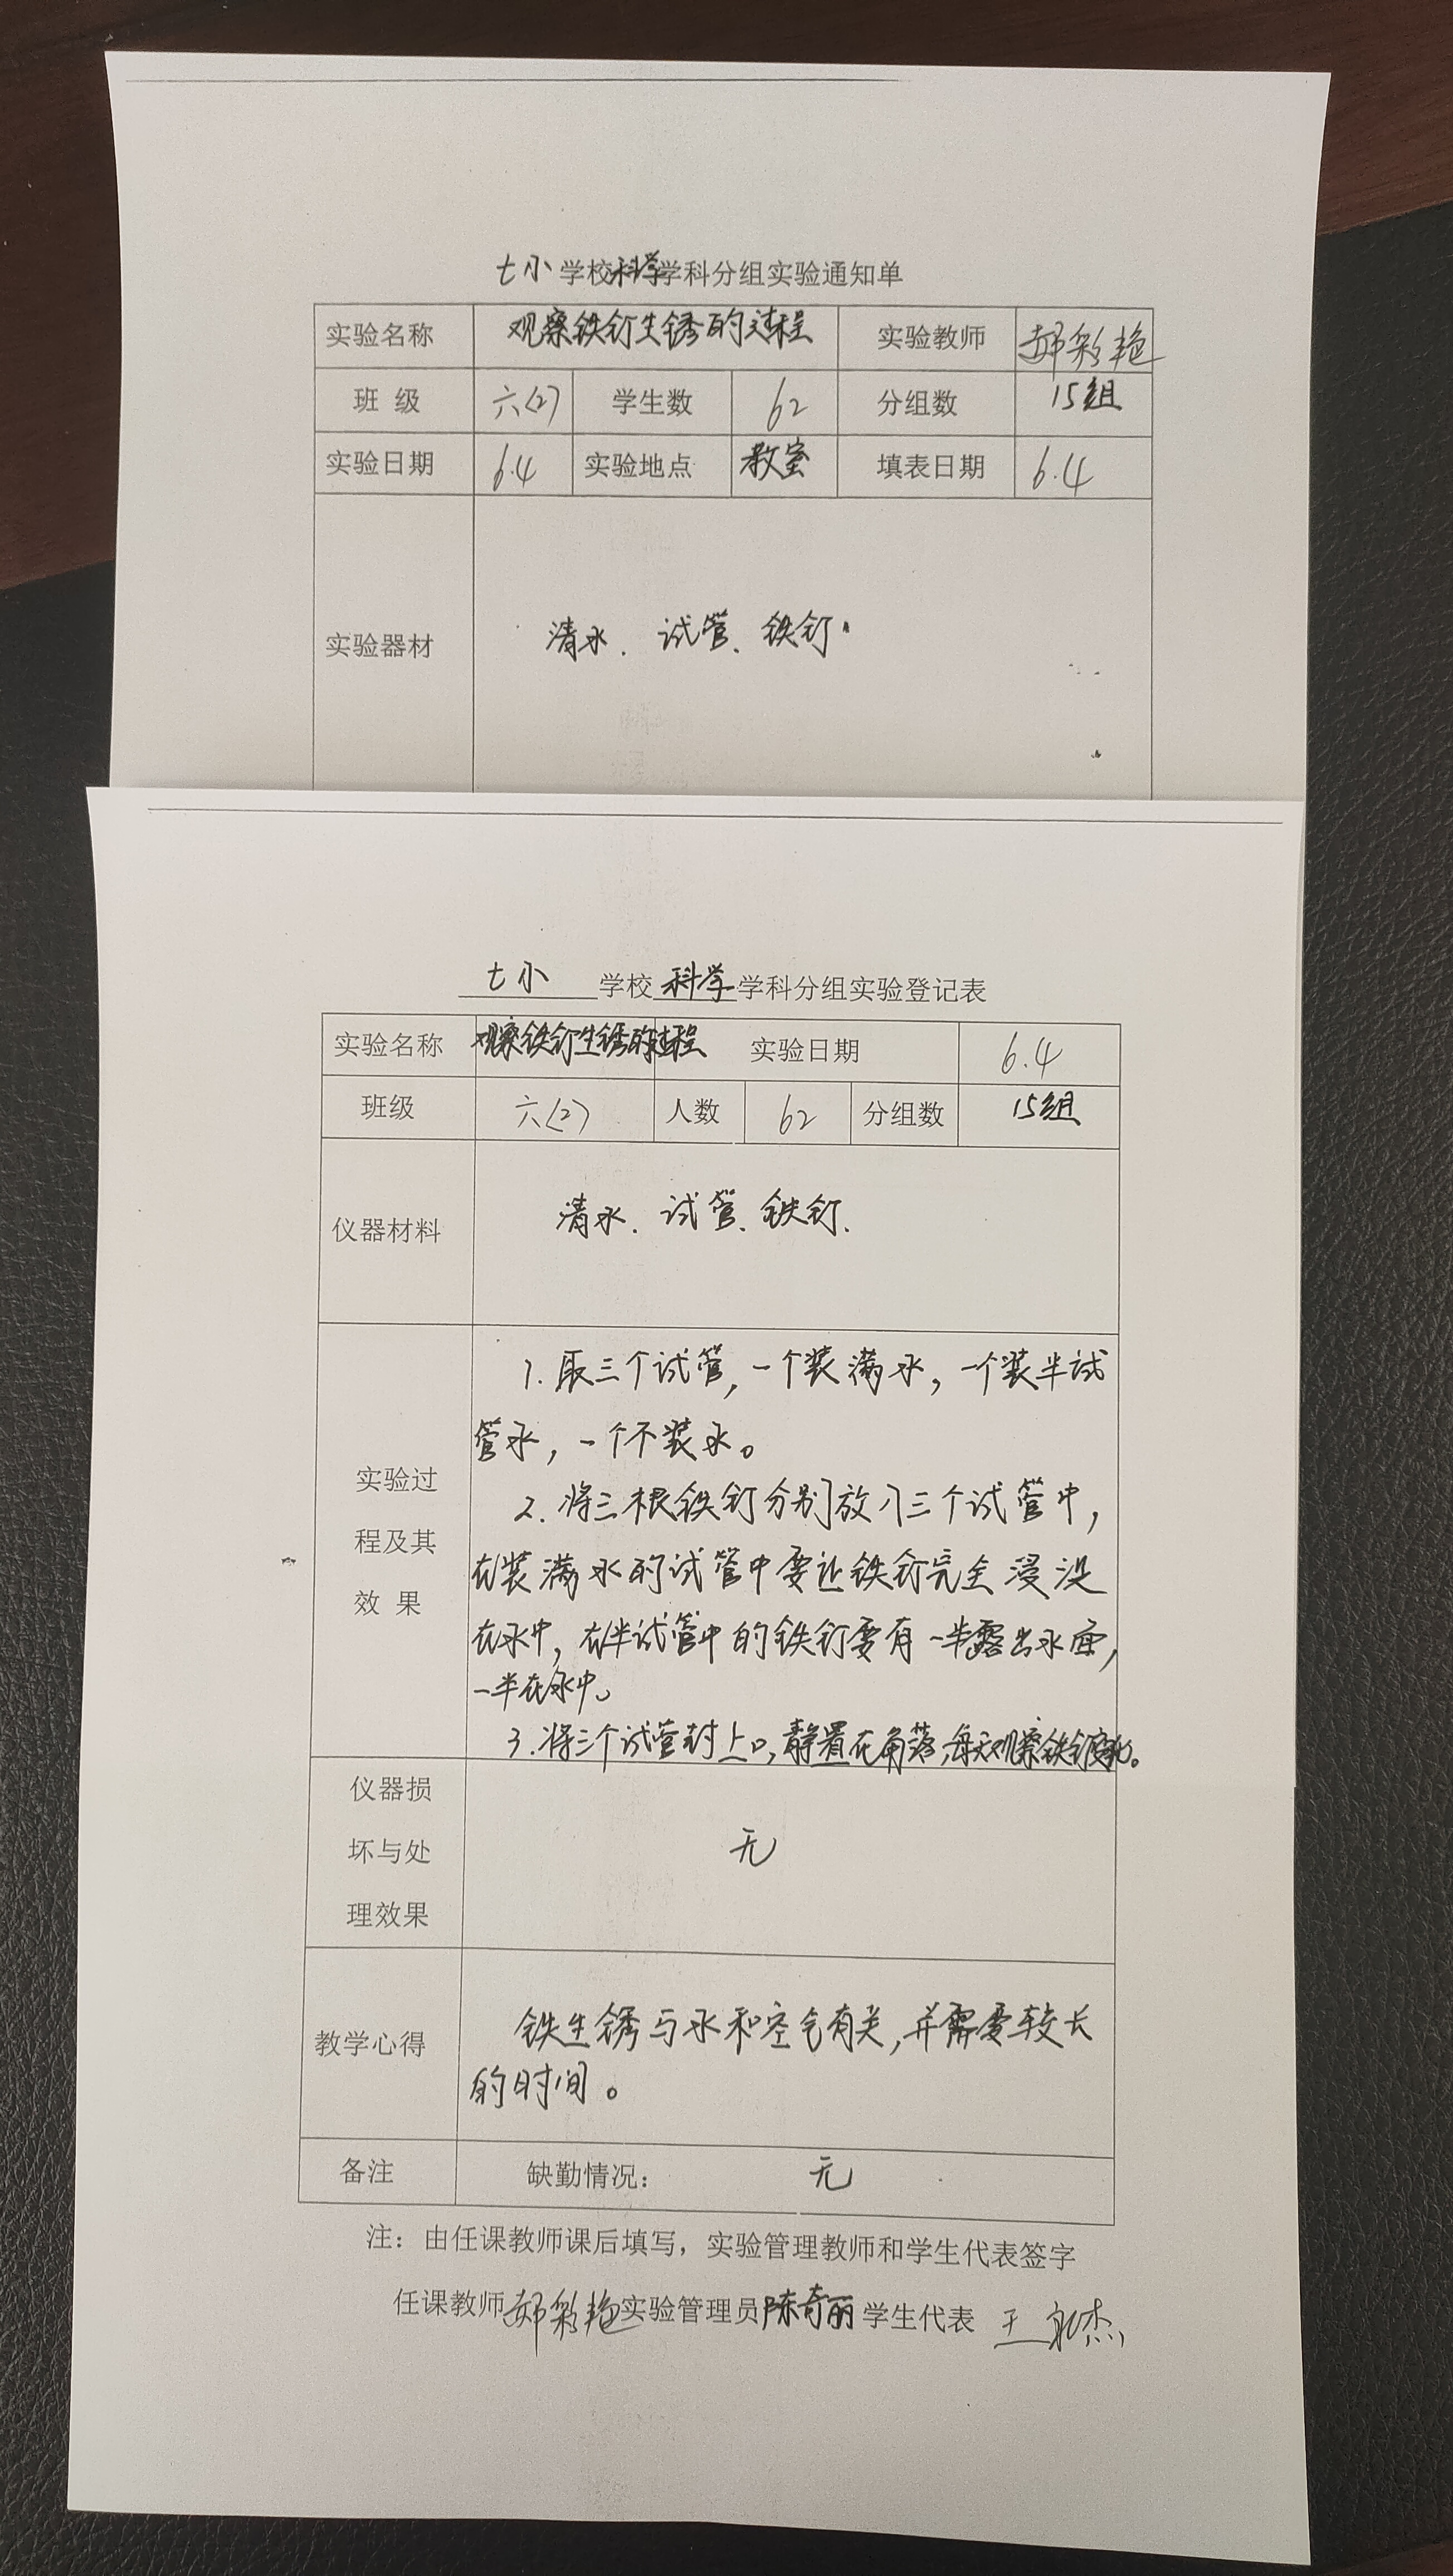 七小学校科学学科分组实验通知单
实验名称 观察铁钉生锈的过程 实验教师 郝彩艳
班 级 六(2) 学生数 62 分组数 15组
实验日期 6.4 实验地点 教室 填表日期 6.4
实验器材 清水、试管、铁钉。
七小 学校 科学 学科分组实验登记表
实验名称 观察铁钉生锈的过程 实验日期 6.4
班级 六(2) 人数 62 分组数 15组
仪器材料 清水、试管、铁钉、
1. 取三个试管,一个装满水,一个装半试
管水,一个不装水。
实验过
2. 将三根铁钉分别放入三个试管中,
程及其
在装满水的试管中要让铁钉完全浸没
效 果
在水中,在半试管中的铁钉要有一半露出水面,
一半在水中。
3. 将三个试管封上口,静置在角落,每天观察铁钉变化。
仪器损
坏与处
无
理效果
铁生锈与水和空气有关,并需要较长
教学心得
的时间。
备注 缺勤情况: 无
注:由任课教师课后填写,实验管理教师和学生代表签字
任课教师郝彩艳实验管理员陈奇丽学生代表 王